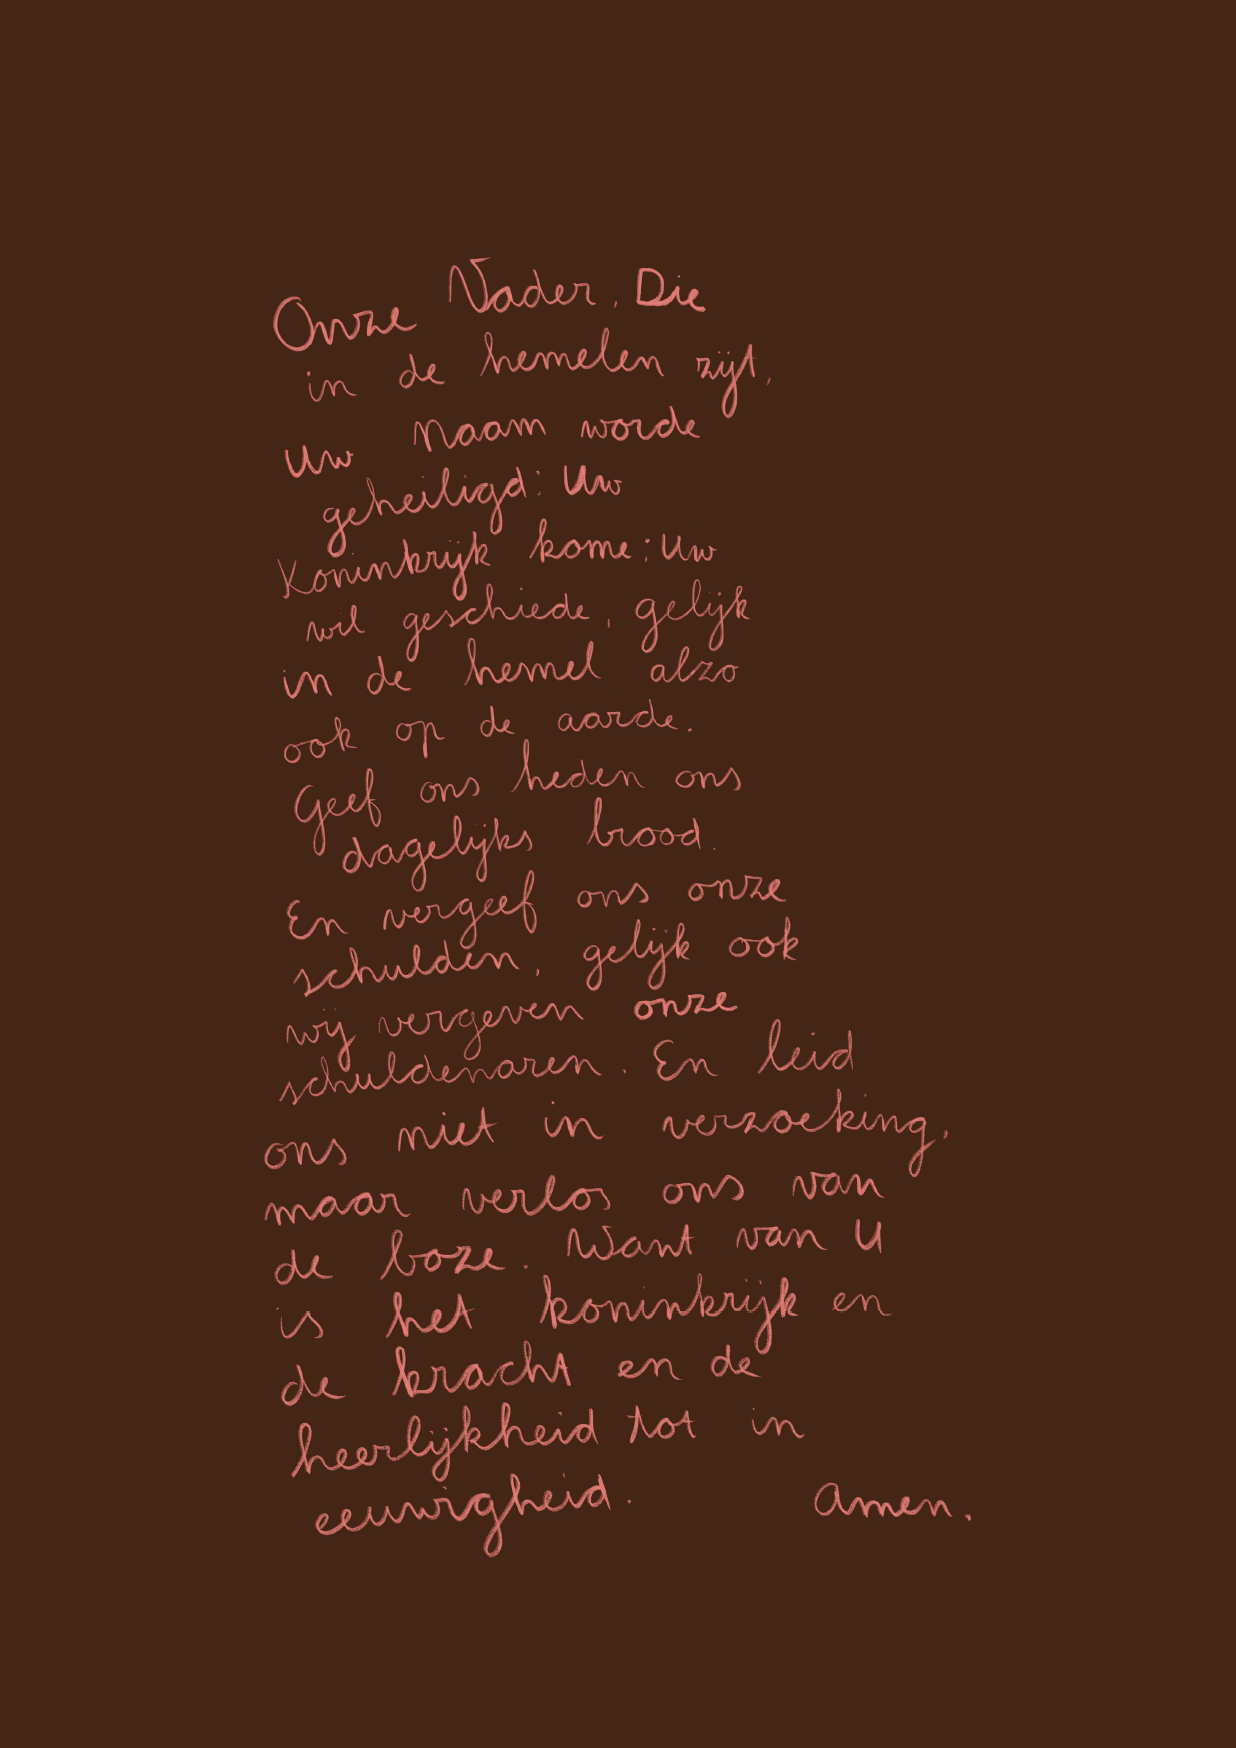 Onze Vader, Die
in de hemelen zijt,
Uw Naam worde
geheiligd; Uw
Koninkrijk kome; Uw
wil geschiede, gelijk
in de hemel alzo
ook op de aarde.
Geef ons heden ons
dagelijks brood.
En vergeef ons onze
schulden, gelijk ook
wij vergeven onze
schuldenaren. En leid
ons niet in verzoeking,
maar verlos ons van
de boze. Want van U
is het koninkrijk en
de kracht en de
heerlijkheid tot in
eeuwigheid. Amen.